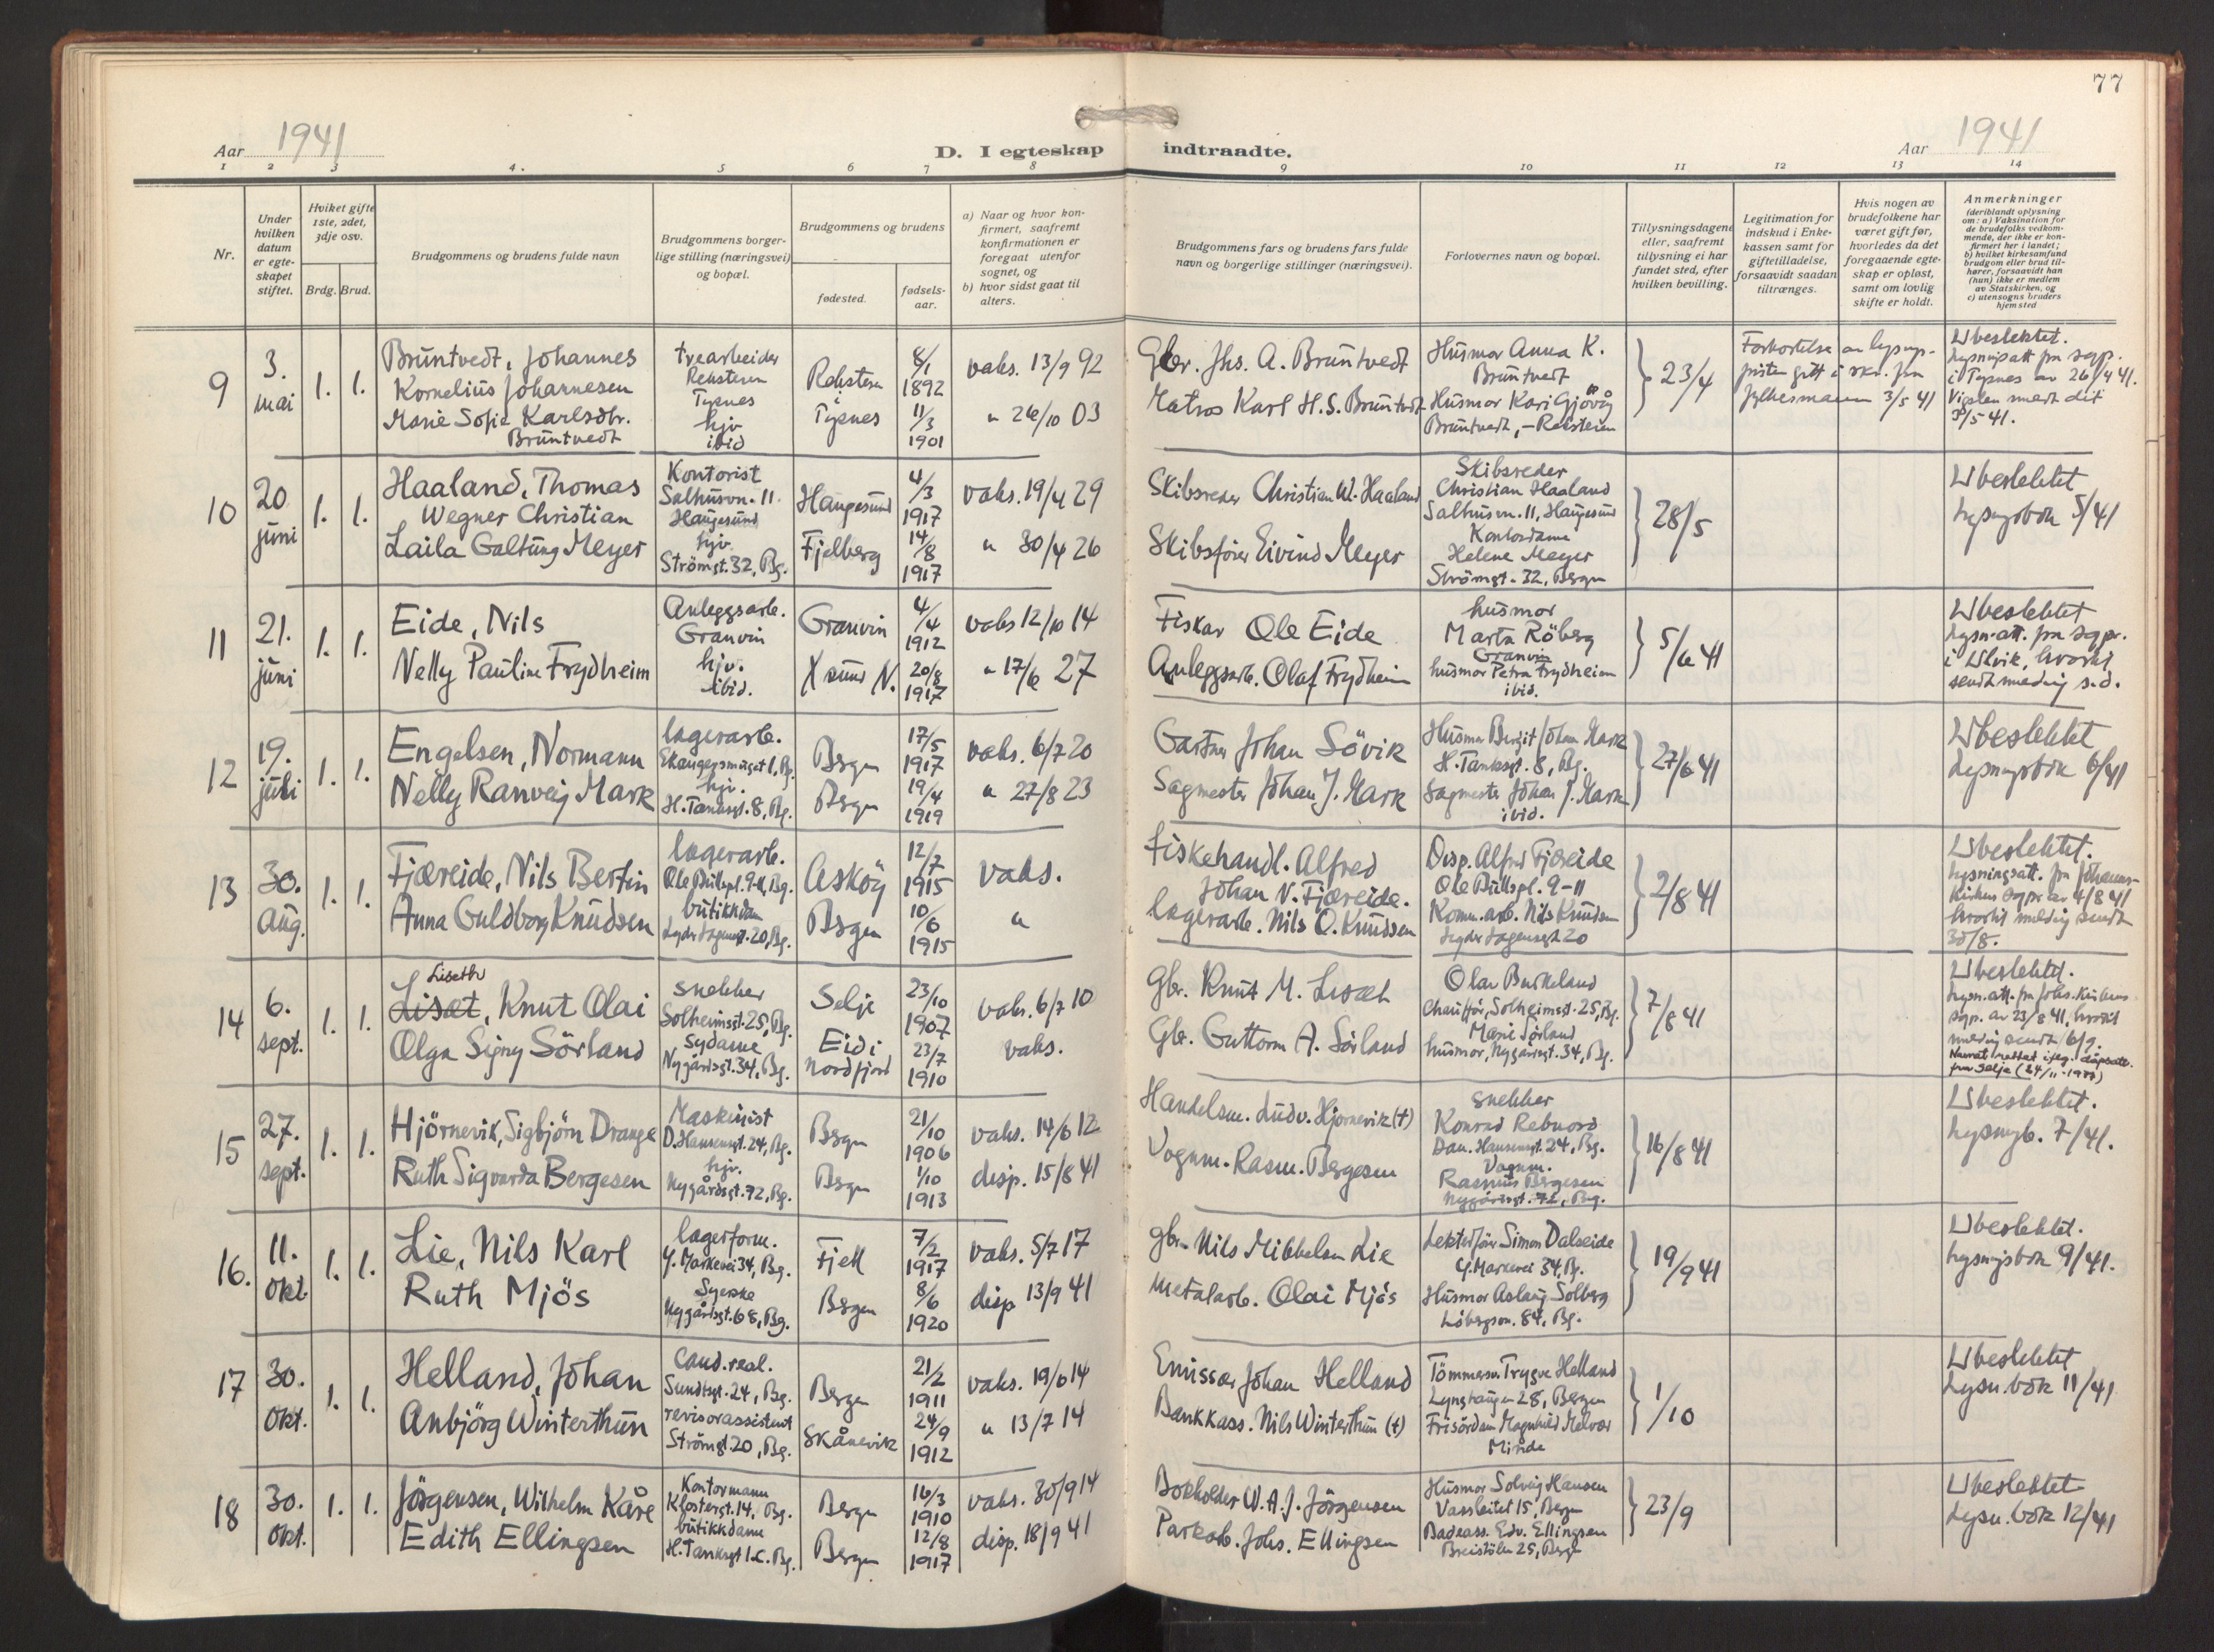 77
Aar 1941
D. I egteskap indtraadte.
Aar 1941
1 2 3 4. 5 6 7 8 9 10 11 12 13 14
Nr.
Under hvilken datum er egteskapet stiftet.
Hviket gifte 1ste, 2det, 3dje osv.
Brdg. Brud.
Brudgommens og brudens fulde navn
Brudgommens borgerlige stilling (næringsvei) og bopæl.
Brudgommens og brudens
fødested.
fødselsaar.
a) Naar og hvor konfirmert, saafremt konfirmationen er foregaat utenfor sognet, og
b) hvor sidst gaat til alters.
Brudgommens fars og brudens fars fulde navn og borgerlige stillinger (næringsvei).
Forlovernes navn og bopæl.
Tillysningsdagene eller, saafremt tillysning ei har fundet sted, efter hvilken bevilling.
Legitimation for indskud i Enkekassen samt for giftetilladelse, forsaavidt saadan tiltrænges.
Hvis nogen av brudefolkene har været gift før, hvorledes da det foregaaende egteskap er opløst, samt om lovlig skifte er holdt.
Anmerkninger
(deriblandt oplysning om: a) Vaksination for de brudefolks vedkommende, der ikke er konfirmert her i landet; b) hvilket kirkesamfund brudgom eller brud tilhører, forsaavidt han (hun) ikke er medlem av Statskirken, og c) utensogns bruders hjemsted
9 3. mai 1. 1.
Bruntvedt, Johannes
Kornelius Johannesen
Marie Sofie Karlsdtr.
Bruntvedt
trearbeider
Reksteren
Tysnes
hjv
ibid
Reksteren
i
Tysnes
8/1 1892
11/3 1901
vaks. 13/9 92
" 26/10 03
Gbr. Jhs. A. Bruntvedt
Matros Karl H. S. Bruntvedt
Husmor Anna K.
Bruntvedt
Husmor Kari Gjövåg
Bruntvedt, - Reksteren
23/4
Forkortelse av lysnings-
fristen gitt i skr. fra
fylkesmannen 3/5 41
Ubeslektet.
Lysningsatt fra sogp.
i Tysnes av 26/4 41.
Vigslen meldt dit
3/5 41.
10 20. juni 1. 1.
Haaland, Thomas
Wegner Christian
Laila Galtung Meyer
Kontorist
Salhusvn. 11
Haugesund
hjv.
Strömgt. 32, Bg.
Haugesund
Fjelberg
4/3 1917
14/8 1917
vaks. 19/4 29
" 30/4 26
Skibsreder Christian W. Haaland
Skibsfører Eivind Meyer
Skibsreder
Christian Haaland
Salhusvn. 11, Haugesund
Kontordame
Helene Meyer
Strömgt. 32, Bergen
28/5
Ubeslektet
Lysngsbok 5/41
11 21. juni 1. 1.
Eide, Nils
Nelly Pauline Frydheim
Anleggsarb.
Granvin
hjv.
ibid.
Granvin
Xsund N.
4/4 1912
20/8 1917
vaks 12/10 14
" 17/6 27
Fisker Ole Eide
Anleggsarb. Olaf Frydheim
husmor
Marta Röberg
Granvin
husmor Petra Frydheim
ibid.
5/6 41
Ubeslektet
Lysn.att. fra sogpr.
i Ulvik, hvortil
sendt melding s.d.
12 19. juli 1. 1.
Engelsen, Normann
Nelly Ranveig Mark
lagerarb.
Skaugesmuget 1, Bg.
hjv.
H. Tanksgt. 8, Bg.
Bergen
Bergen
17/5 1917
19/4 1919
vaks. 6/7 20
" 27/8 23
Gartner Johan Sövik
Sagmester Johan J. Mark
Husmor Bergit Johan Mark
H. Tanksgt. 8, Bg.
Sagmester Johan J. Mark
ibid.
27/6 41
Ubeslektet
Lysningsbok 6/41
13 30. Aug. 1. 1.
Fjæreide, Nils Bertin
Anna Guldborg Knudsen
lagerarb.
Ole Bullspl. 9-11, Bg.
butikkdam
Lyder Sagensgt. 20, Bg.
Askøy
Bergen
12/7 1915
10/6 1915
vaks.
"
Fiskehandl. Alfred
Johan N. Fjæreide.
lagerarb. Nils O. Knudsen
Disp. Alfred Fjæreide
Ole Bullspl. 9-11
Komm.arb. Nils Knudsen
Lyder Sagensgt 20
2/8 41
Ubeslektet.
Lysningsatt. fra Johannes-
kirkens sogpr av 4/8 41
hvortil melding sendt
30/8.
14 6. sept. 1. 1.
Liseth
Lisæt, Knut Olai
Olga Signy Sörland
snekker
Solheimsgt. 25, Bg.
sydame
Nygårdsgt. 34, Bg.
Selje
Eid i
Nordfjord
23/10 1907
23/7 1910
vaks. 6/7 10
vaks.
Gbr. Knut M. Lisæt
Gbr. Guttorm A. Sörland
Olav Burkeland
Chauffør, Solheimsgt. 25, Bg.
Marie Sörland
husmor, Nygårdsgt. 34, Bg.
7/8 41
Ubeslektet.
Lysn.att. fra Johs. kirkens
sogp. av 23/8 41, hvortil
melding sendt 6/9.
Navnet rettet ifølg. dåpsatt.
fra Selje (24/11-1977)
15 27. sept. 1. 1.
Hjörnevik, Sigbjörn Drange
Ruth Sigvarda Bergesen
Maskinist
D. Hansensgt. 24, Bg.
hjv.
Nygårdsgt. 72, Bg.
Bergen
Bergen
21/10 1906
1/10 1913
vaks. 14/6 12
disp. 15/8 41
Handelsm. Ludv. Hjörnevik (†)
Vognm. Rasm. Bergesen
snekker
Konrad Rebnord
Dan. Hansensgt. 24, Bg.
Vognm.
Rasmus Bergesen
Nygårdsgt. 72, Bg.
16/8 41
Ubeslektet.
Lysningb. 7/41.
16. 11. Okt. 1. 1.
Lie, Nils Karl
Ruth Mjös
lagerform.
Y. Markevei 34, Bg.
Syerske
Nygårdsgt. 68, Bg.
Fjell
Bergen
7/2 1917
8/6 1920
vaks. 5/7 17
disp 13/9 41
gbr. Nils Mikkelsen Lie
Metalarb. Olai Mjös
Lekterfører Simon Dalseide
Y. Markevei 34, Bg.
Husmor Aslaug Solberg
Löbergsvn. 84, Bg.
19/9 41
Ubeslektet.
Lysningsbok 9/41.
17 30. Okt. 1. 1.
Helland, Johan
Anbjörg Winterthun
Cand. real.
Sundtsgt. 24, Bg.
revisorassistent
Strömgt. 20, Bg.
Bergen
Skånevik
21/2 1911
24/9 1912
vaks. 19/6 14
" 13/7 14
Emissær Johan Helland
Bankkass. Nils Winterthun (†)
Tömmerm. Trygve Helland
Lynghaugen 28, Bergen
Frisördam Magnhild Melvær
Minde
1/10
Ubeslektet
Lysn. bok 11/41
18 30. Okt. 1. 1.
Jörgensen, Wilhelm Kåre
Edith Ellingsen
Kontormann
Klostergt. 14, Bg.
butikkdame
H. Tanksgt 1 c. Bg.
Bergen
Bergen
16/3 1910
12/8 1917
vaks. 30/9 14
disp. 18/9 41
Bokholder W. A. J. Jörgensen
Parkarb. Johs. Ellingsen
Husmor Solveig Hansen
Vassleitet 15, Bergen
Badeass. Edv. Ellingsen
Breistölen 25, Bergen
23/9
Ubeslektet
Lysn. bok 12/41